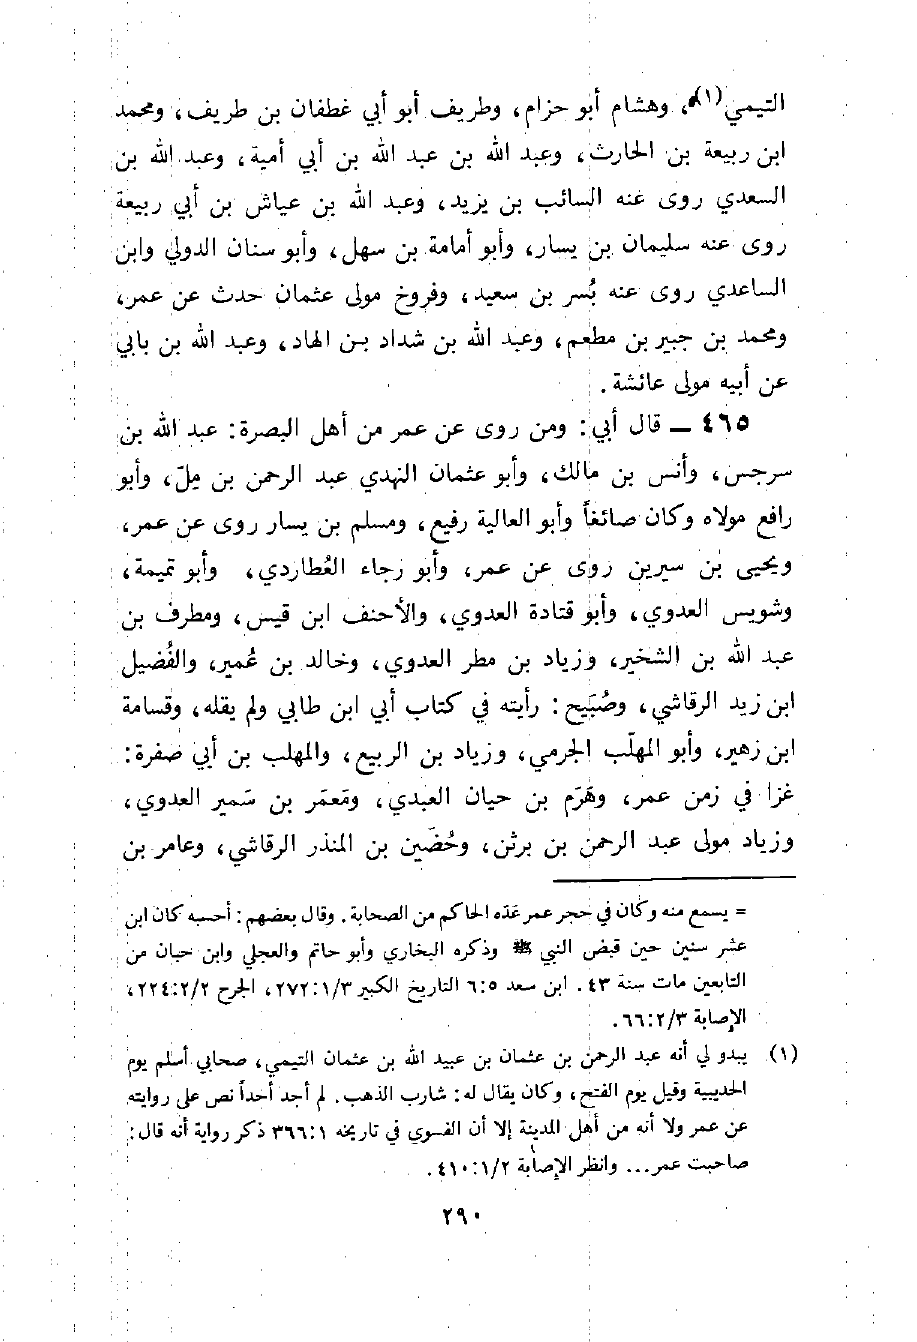 التيمي(١)، وهشام أبو حزام، وطريف أبو أبي غطفان بن طريف، ومحمد
ابن ربيعة بن الحارث، وعبد الله بن عبد الله بن أبي أمية، وعبد الله بن
السعدي روى عنه السائب بن يزيد، وعبد الله بن عياش بن أبي ربيعة
روى عنه سليمان بن يسار، وأبو أمامة بن سهل، وأبو سنان الدولي وابن
الساعدي روى عنه بُسر بن سعيد، وفروخ مولى عثمان حدث عن عمر،
ومحمد بن جبير بن مطعم، وعبد الله بن شداد بن الهاد، وعبد الله بن بابي
عن أبيه مولى عائشة.
٤٦٥ ـ قال أبي: ومن روى عن عمر من أهل البصرة: عبد الله بن
سرجس، وأنس بن مالك، وأبو عثمان النهدي عبد الرحمن بن مِلّ، وأبو
رافع مولاه وكان صائغاً وأبو العالية رفيع، ومسلم بن يسار روى عن عمر،
ويحيى بن سيرين روى عن عمر، وأبو رجاء العُطاردي، وأبو تميمة،
وشويس العدوي، وأبو قتادة العدوي، والأحنف ابن قيس، ومطرف بن
عبد الله بن الشخير، وزياد بن مطر العدوي، وخالد بن عُمير، والفُضيل
ابن زيد الرقاشي، وصُبَيح: رأيته في كتاب أبي ابن طابي ولم يقله، وقسامة
ابن زهير، وأبو المهلّب الجرمي، وزياد بن الربيع، والمهلب بن أبي صفرة:
غزا في زمن عمر، وهَرَم بن حيان العبدي، ومَعمَر بن سَمير العدوي،
وزياد مولى عبد الرحمن بن برثن، وحُضَين بن المنذر الرقاشي، وعامر بن
= يسمع منه وكان في حجر عمر عَدّه الحاكم من الصحابة. وقال بعضهم: أحسبه كان ابن
عشر سنين حين قبض النبي ﷺ وذكره البخاري وأبو حاتم والعجلي وابن حبان من
التابعين مات سنة ٤٣. ابن سعد ٦:٥ التاريخ الكبير ٢٧٢:١/٣، الجرح ٢٢٤:٢/٢،
الإصابة ٦٦:٢/٣.
(١) يبدو لي أنه عبد الرحمن بن عثمان بن عبيد الله بن عثمان التيمي، صحابي أسلم يوم
الحديبية وقيل يوم الفتح، وكان يقال له: شارب الذهب. لم أجد أحداً نص على روايته
عن عمر ولا أنه من أهل المدينة إلا أن الفسوي في تاريخه ٣٦٦:١ ذكر رواية أنه قال:
صاحبت عمر... وانظر الإصابة ٤١٠:١/٢.
٢٩٠